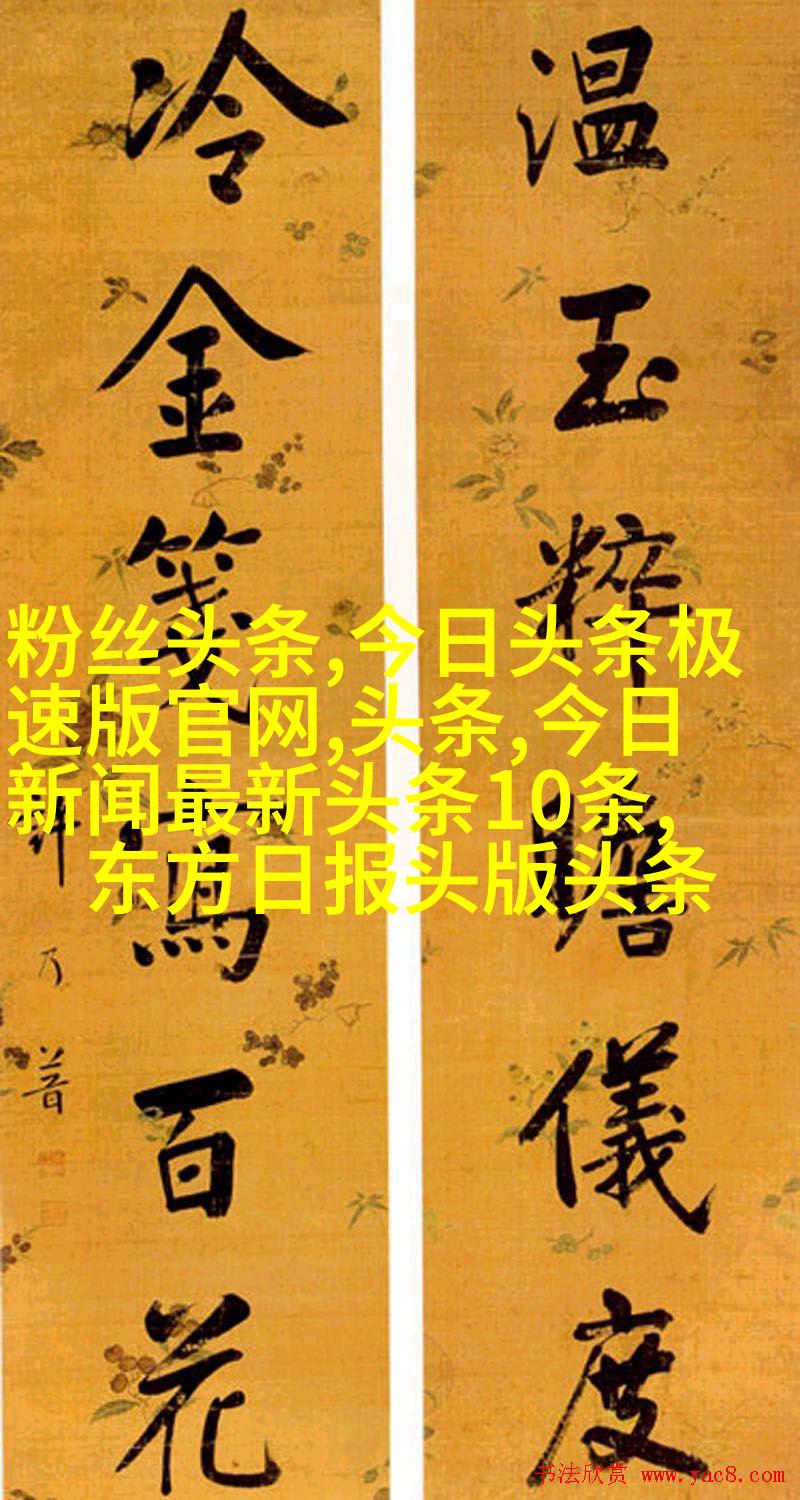 温玉粹
儀度
冷金箋
寫百花
乃普
粉丝头条,今日头条极
速版官网,头条,今日
新闻最新头条10条,
东方日报头版头条
书法欣赏 www.yac8.com